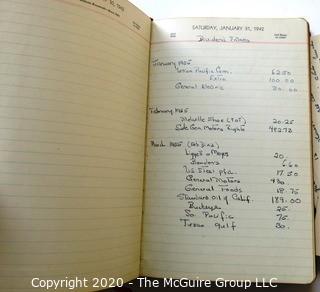 SATURDAY, JANUARY 31, 1942
Dividend
January 1955
Union Pacific Com. 62.50
Extra 100.00
General Electric 80.00
February 1955
Melville Shoe (40T) 20.25
Sale Gen. Motors Rights 482.73
March 1955
Liggett & Myers 20.
Sanders 6.60
US Steel pfd. 17.50
General Motors
General Foods 18.75
Standard Oil of Calif. 189.00
Buckeye 25.
So. Pacific 75.
Texas Gulf 30.
Copyright 2020 - The McGuire Group LLC